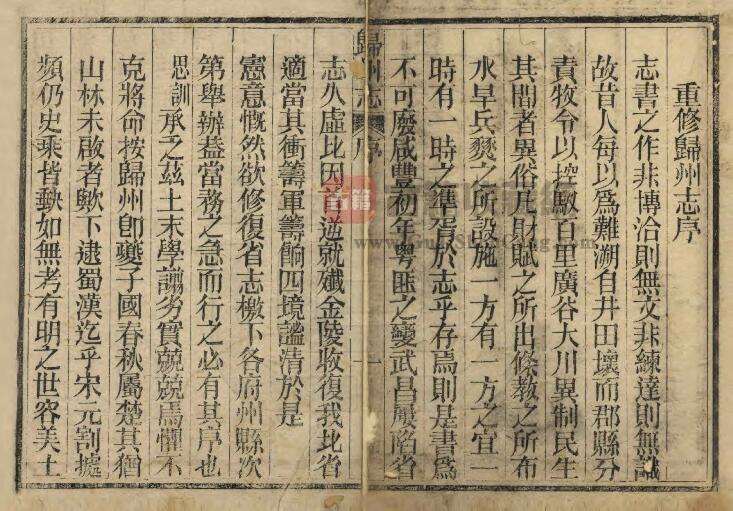 重修歸州志序
志書之作非博洽則無文非練達則無識
故昔人每以爲難溯自井田壞而郡縣分
責牧令以控馭百里廣谷大川異制民生
其間者異俗凡財賦之所出條教之所布
水旱兵燹之所設施一方有一方之宜一
時有一時之準胥於志乎存焉則是書爲
不可廢咸豐初年粵匪之變武昌屢陷省
歸州志 序 一
志久虛比因首逆就殲金陵收復我北省
適當其衝籌軍籌餉四境謐清於是
憲意慨然欲修復省志檄下各府州縣次
第舉辦葢當務之急而行之必有其序也
思訓承之茲土末學譾劣實兢兢焉懼不
克將命按歸州卽夔子國春秋屬楚其猶
山林未啟者歟下逮蜀漢迄乎宋元割據
頻仍史乘皆缺如無考有明之世容美土